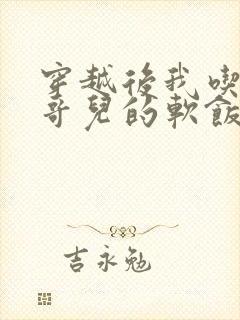 穿越後我喫
哥兒的軟飯
吉永勉